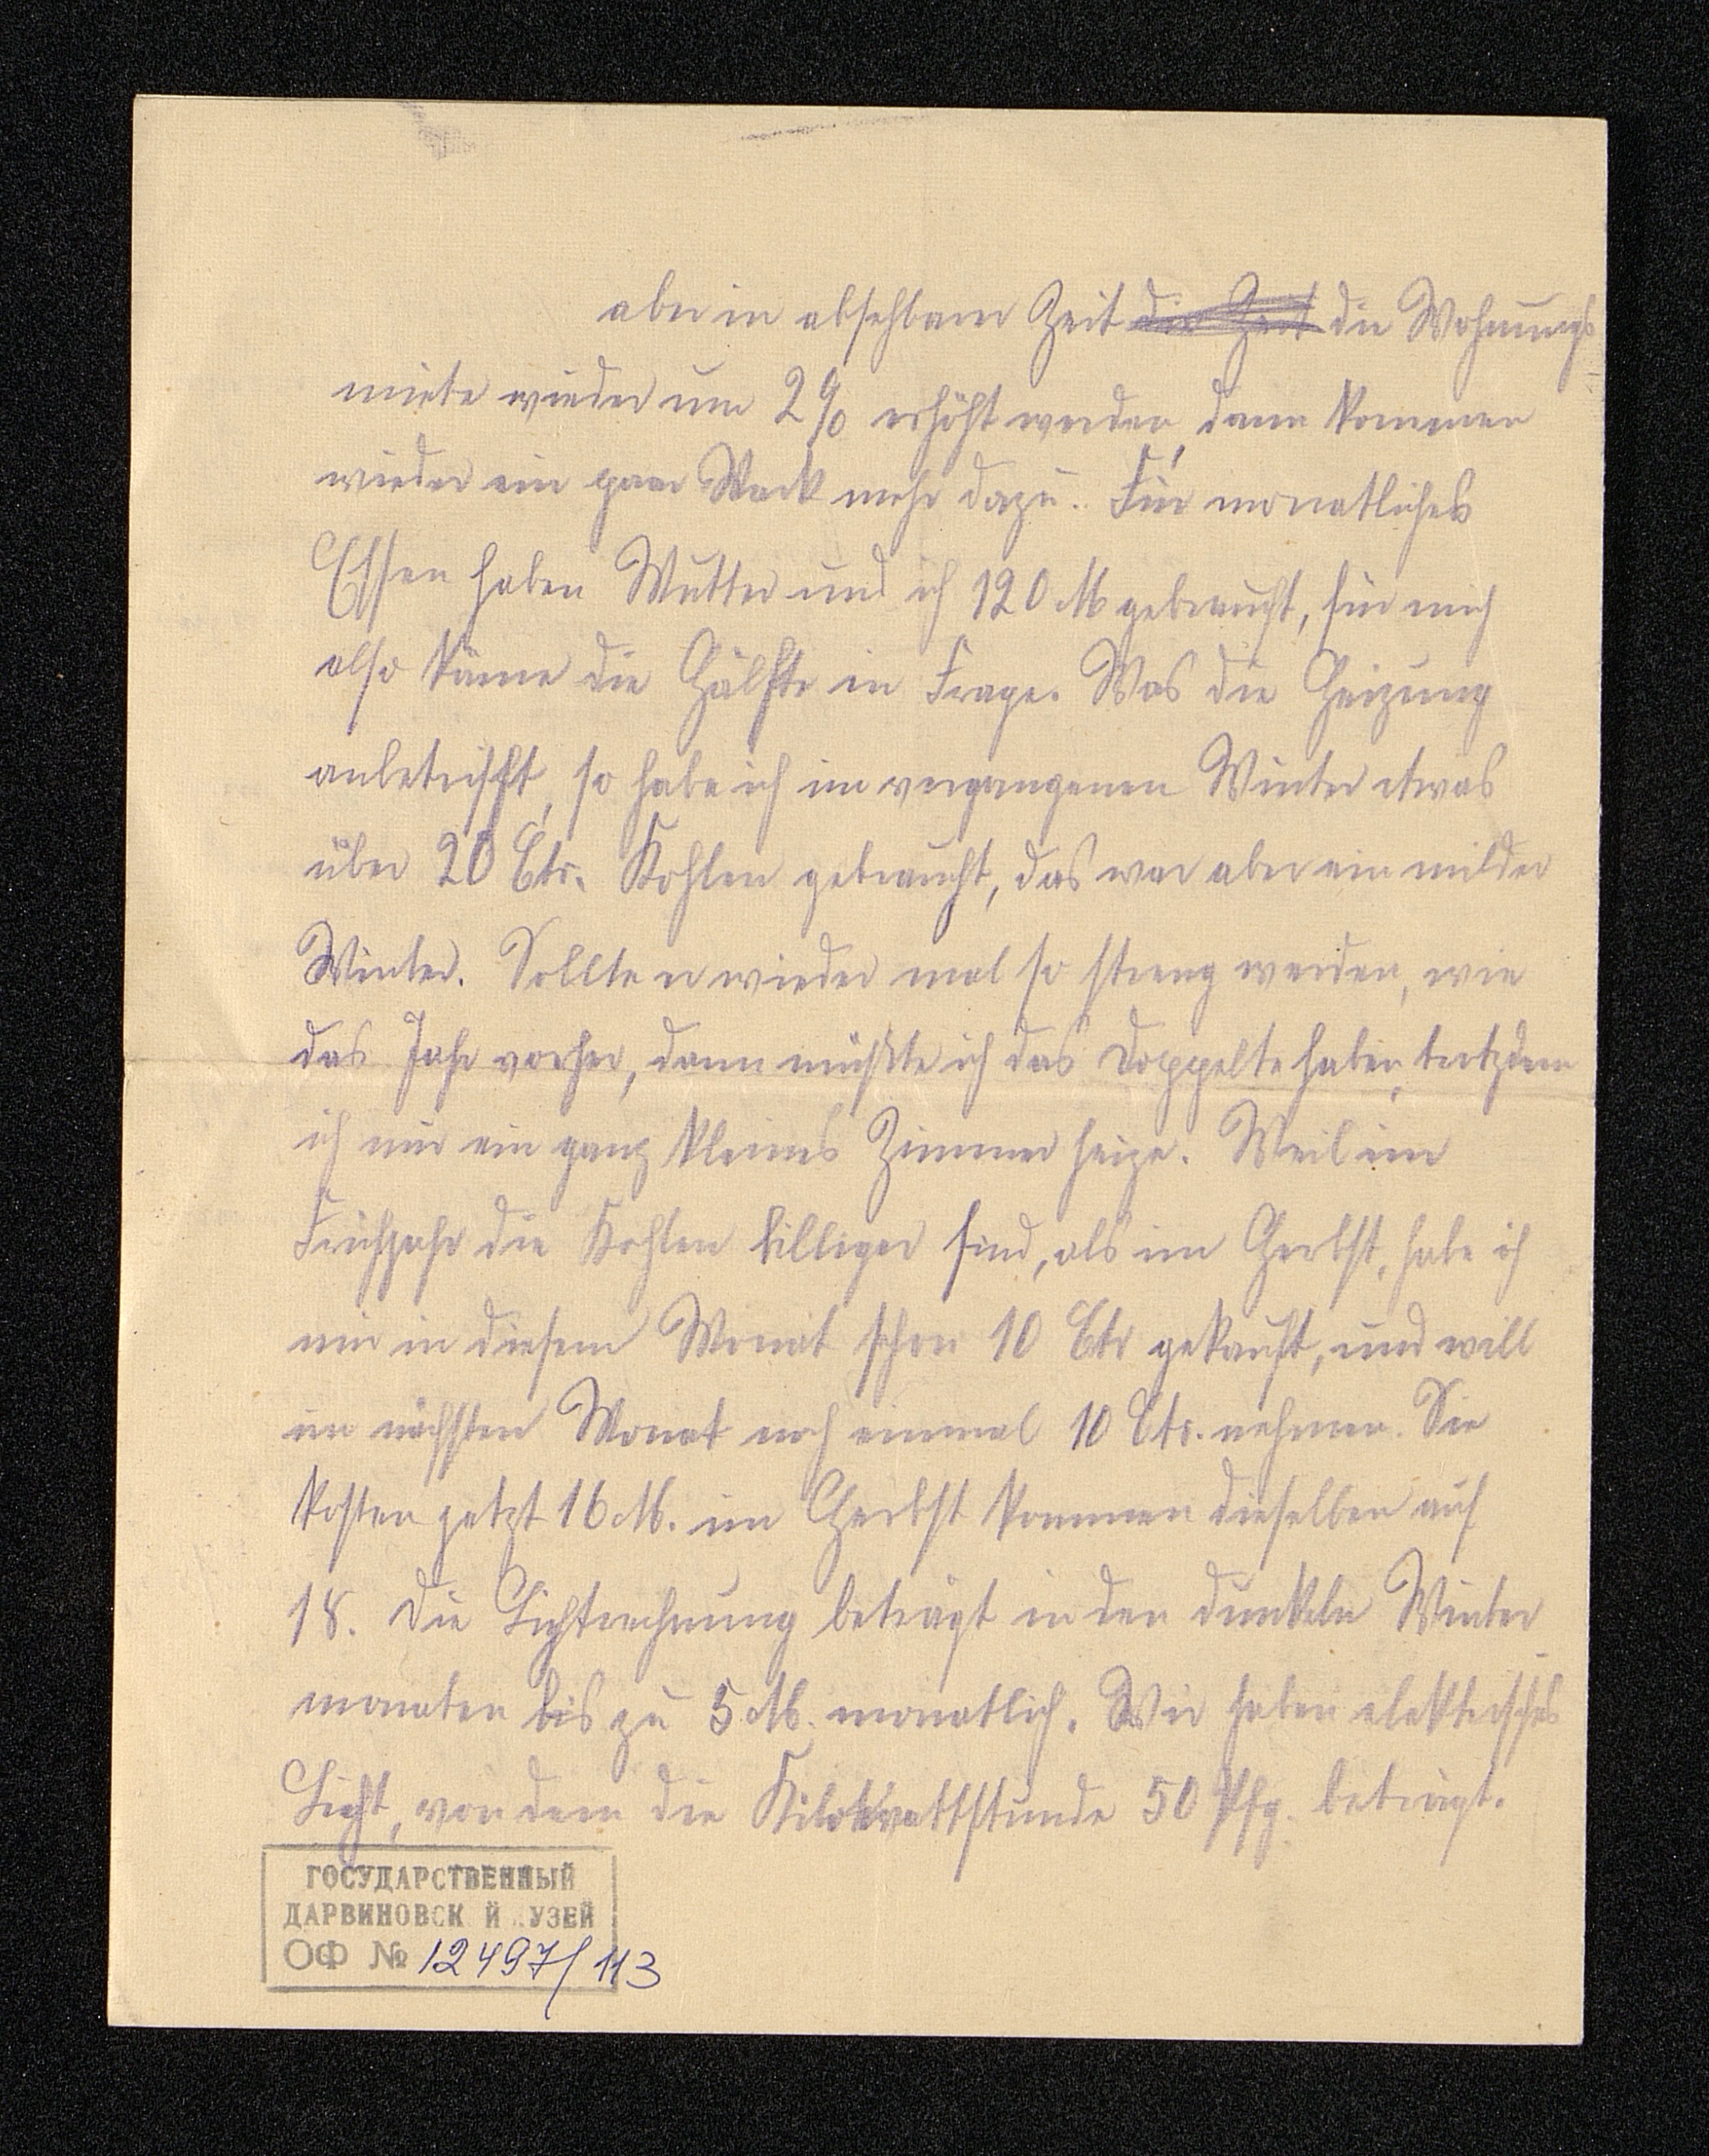 aber in absehbarer Zeit die Zeit die Wohnungs
miete wieder um 2% erhöht werden, dann kommen
wieder ein paar Mark mehr dazu. Für monatliches
Essen haben Mutter und ich 120 M gebraucht, für mich
also käme die Hälfte in Frage. Was die Heizung
anbetrifft, so habe ich im vergangenen Winter etwas
über 20 Ctr. Kohlen gebraucht, das war aber ein milder
Winter. Sollte er wieder mal so streng werden, wie
das Jahr vorher, dann müßte ich das Doppelte haben, trotzdem
ich nur ein ganz kleines Zimmer heize. Weil im
Frühjahr die Kohlen billiger sind, als im Herbst, habe ich
mir in diesem Monat schon 10 Ctr gekauft, und will
im nächsten Monat noch einmal 10 Ctr. nehmen. Sie
kosten jetzt 16 M. im Herbst kommen dieselben auf
18. Die Lichtrechnung beträgt in den dunkeln Winter
monaten bis zu 5 M. monatlich. Wir haben elektrisches
Licht, von dem die Kilowattstunde 50 Pfg. beträgt.
ГОСУДАРСТВЕННЫЙ
ДАРВИНОВСК Й УЗЕЙ
ОФ № 12497/113